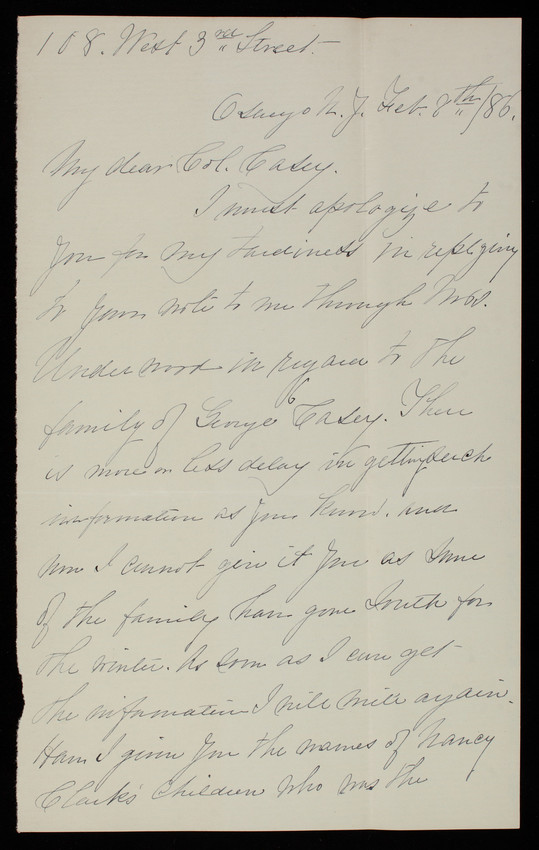 108. West 3rd Street.
Oswego N.Y. Feb. 8th/86.
My dear Col. Casey.
I must apologize to
you for my tardiness in replying
to your note to me through Mrs.
Underwood in regard to the
family of George 6 Casey. There
is more or less delay in getting such
information as you know. and
now I cannot give it you as some
of the family have gone South for
the winter. As soon as I can get
the information I will write again.
Have I given you the names of Nancy
Clark's Children who was the